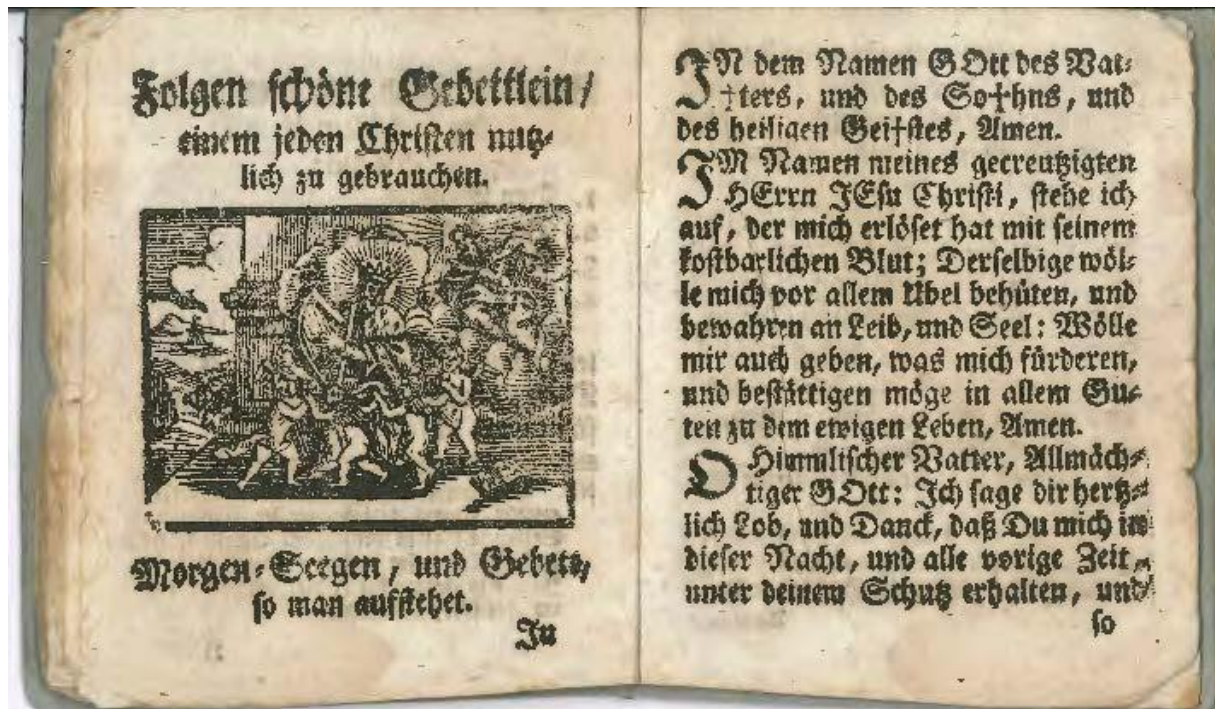 Folgen schöne Gebettlein/
einem jeden Christen nutz-
lich zu gebrauchen.
Morgen-Seegen, und Gebett,
so man aufstehet.
In
IN dem Namen GOtt des Vat-
†ters, und des So†hns, und
des heiligen Gei†stes, Amen.
IM Namen meines gecreutzigten
HErrn JEsu Christi, stehe ich
auf, der mich erlöset hat mit seinem
kostbarlichen Blut; Derselbige wöl-
le mich vor allem Ubel behüten, und
bewahren an Leib, und Seel: Wölle
mir auch geben, was mich fürderen,
und bestättigen möge in allem Gu-
ten zu dem ewigen Leben, Amen.
O Himmlischer Vatter, Allmäch-
tiger GOtt: Ich sage dir hertz-
lich Lob, und Danck, daß Du mich in
dieser Nacht, und alle vorige Zeit,
unter deinem Schutz erhalten, und
so